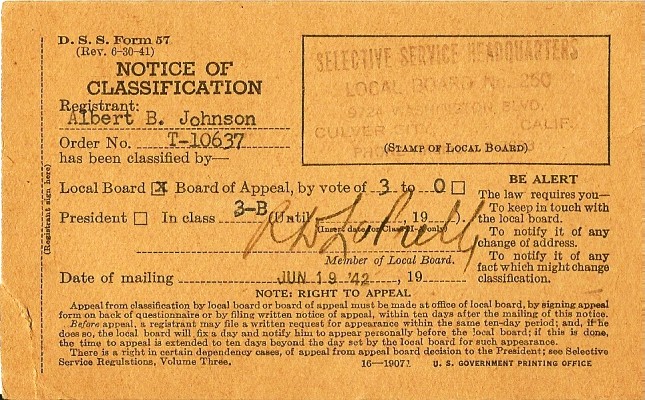 D. S. S. Form 57
(Rev. 6-30-41)
NOTICE OF
CLASSIFICATION
Registrant:
Albert B. Johnson
Order No. T-10637
has been classified by—
SELECTIVE SERVICE HEADQUARTERS
LOCAL BOARD No. 260
9724 WASHINGTON BLVD.
CULVER CITY, CALIF.
(STAMP OF LOCAL BOARD)
Local Board ☒ Board of Appeal, by vote of 3 to 0 ☐
President ☐ In class 3-B (Until , 19 ).
(Insert date for Class I-A only)
Member of Local Board.
Date of mailing JUN 19 '42, 19
BE ALERT
The law requires you—
To keep in touch with
the local board.
To notify it of any
change of address.
To notify it of any
fact which might change
classification.
(Registrant sign here)
NOTE: RIGHT TO APPEAL
Appeal from classification by local board or board of appeal must be made at office of local board, by signing appeal
form on back of questionnaire or by filing written notice of appeal, within ten days after the mailing of this notice.
Before appeal, a registrant may file a written request for appearance within the same ten-day period; and, if he
does so, the local board will fix a day and notify him to appear personally before the local board; if this is done,
the time to appeal is extended to ten days beyond the day set by the local board for such appearance.
There is a right in certain dependency cases, of appeal from appeal board decision to the President; see Selective
Service Regulations, Volume Three.
16—19071 U. S. GOVERNMENT PRINTING OFFICE